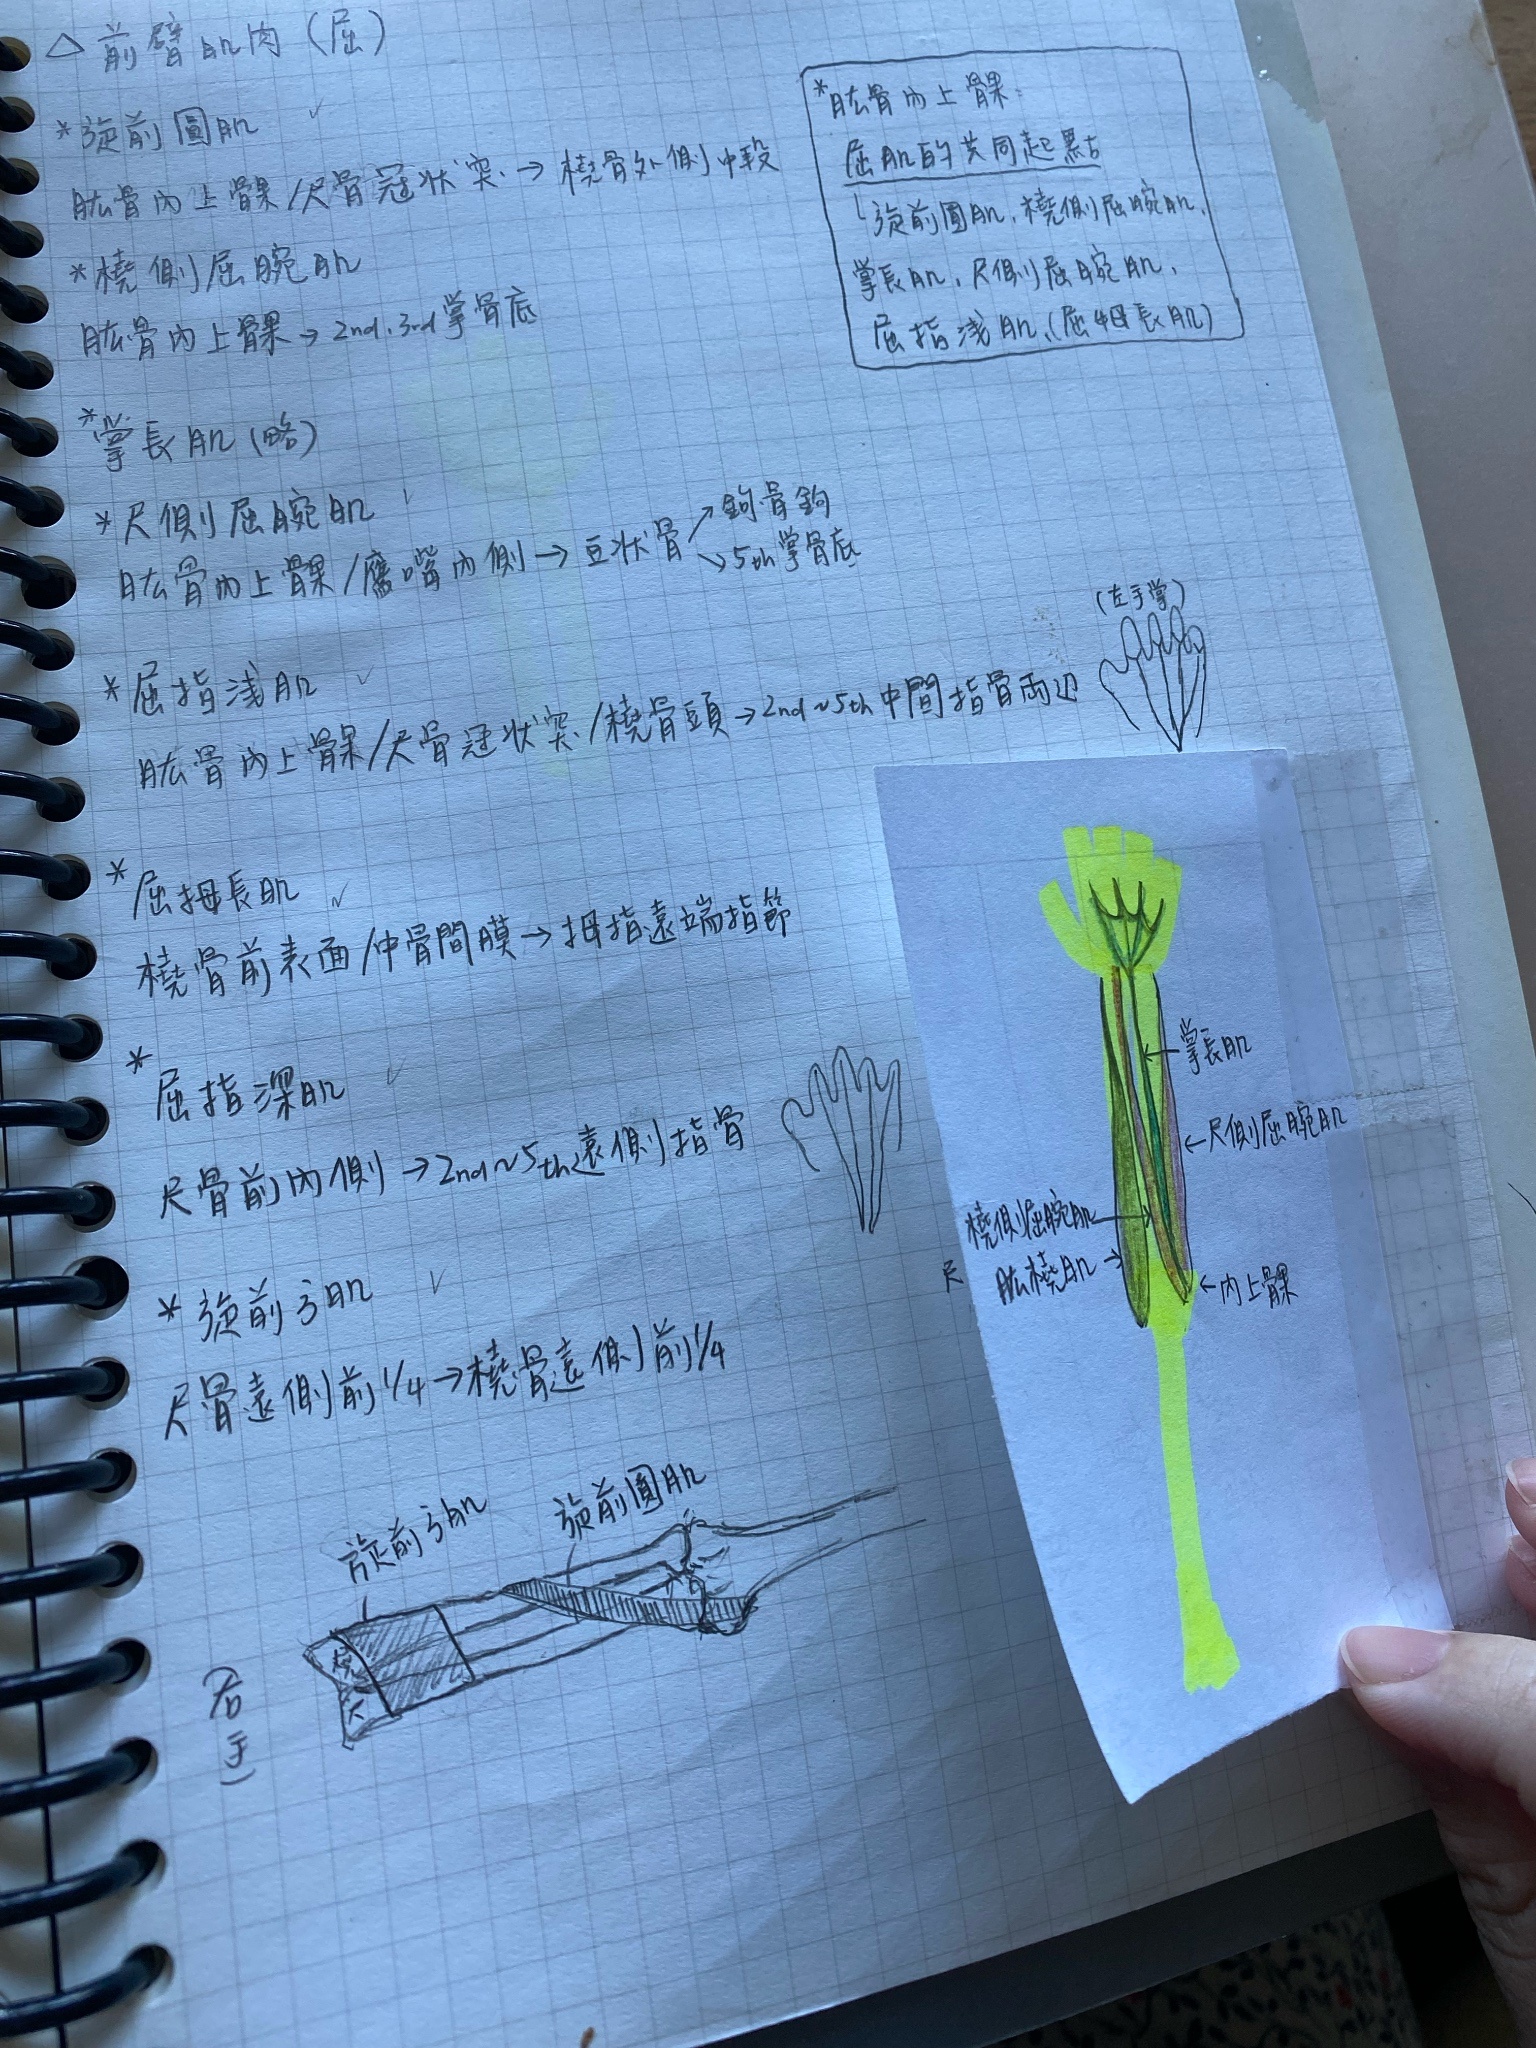 △前臂肌肉(屈)
*旋前圓肌 ✓
肱骨內上髁/尺骨冠狀突→橈骨外側中段
*橈側屈腕肌
肱骨內上髁→2nd.3rd掌骨底
*掌長肌(略)
*尺側屈腕肌 ✓
肱骨內上髁/鷹嘴內側→豆狀骨↗鉤骨鉤
↘5th掌骨底
*屈指淺肌 ✓
肱骨內上髁/尺骨冠狀突/橈骨頭→2nd~5th中間指骨兩边
*屈拇長肌 ✓
橈骨前表面/中骨間膜→拇指遠端指節
*屈指深肌 ✓
尺骨前內側→2nd~5th遠側指骨
*旋前方肌 ✓
尺骨遠側前1/4→橈骨遠側前1/4
旋前方肌
旋前圓肌
橈
尺
(右手)
*肱骨內上髁:
屈肌的共同起點
└旋前圓肌、橈側屈腕肌、
掌長肌、尺側屈腕肌、
屈指淺肌、(屈拇長肌)
(左手掌)
掌長肌
←尺側屈腕肌
橈側屈腕肌
肱橈肌
←內上髁
尺